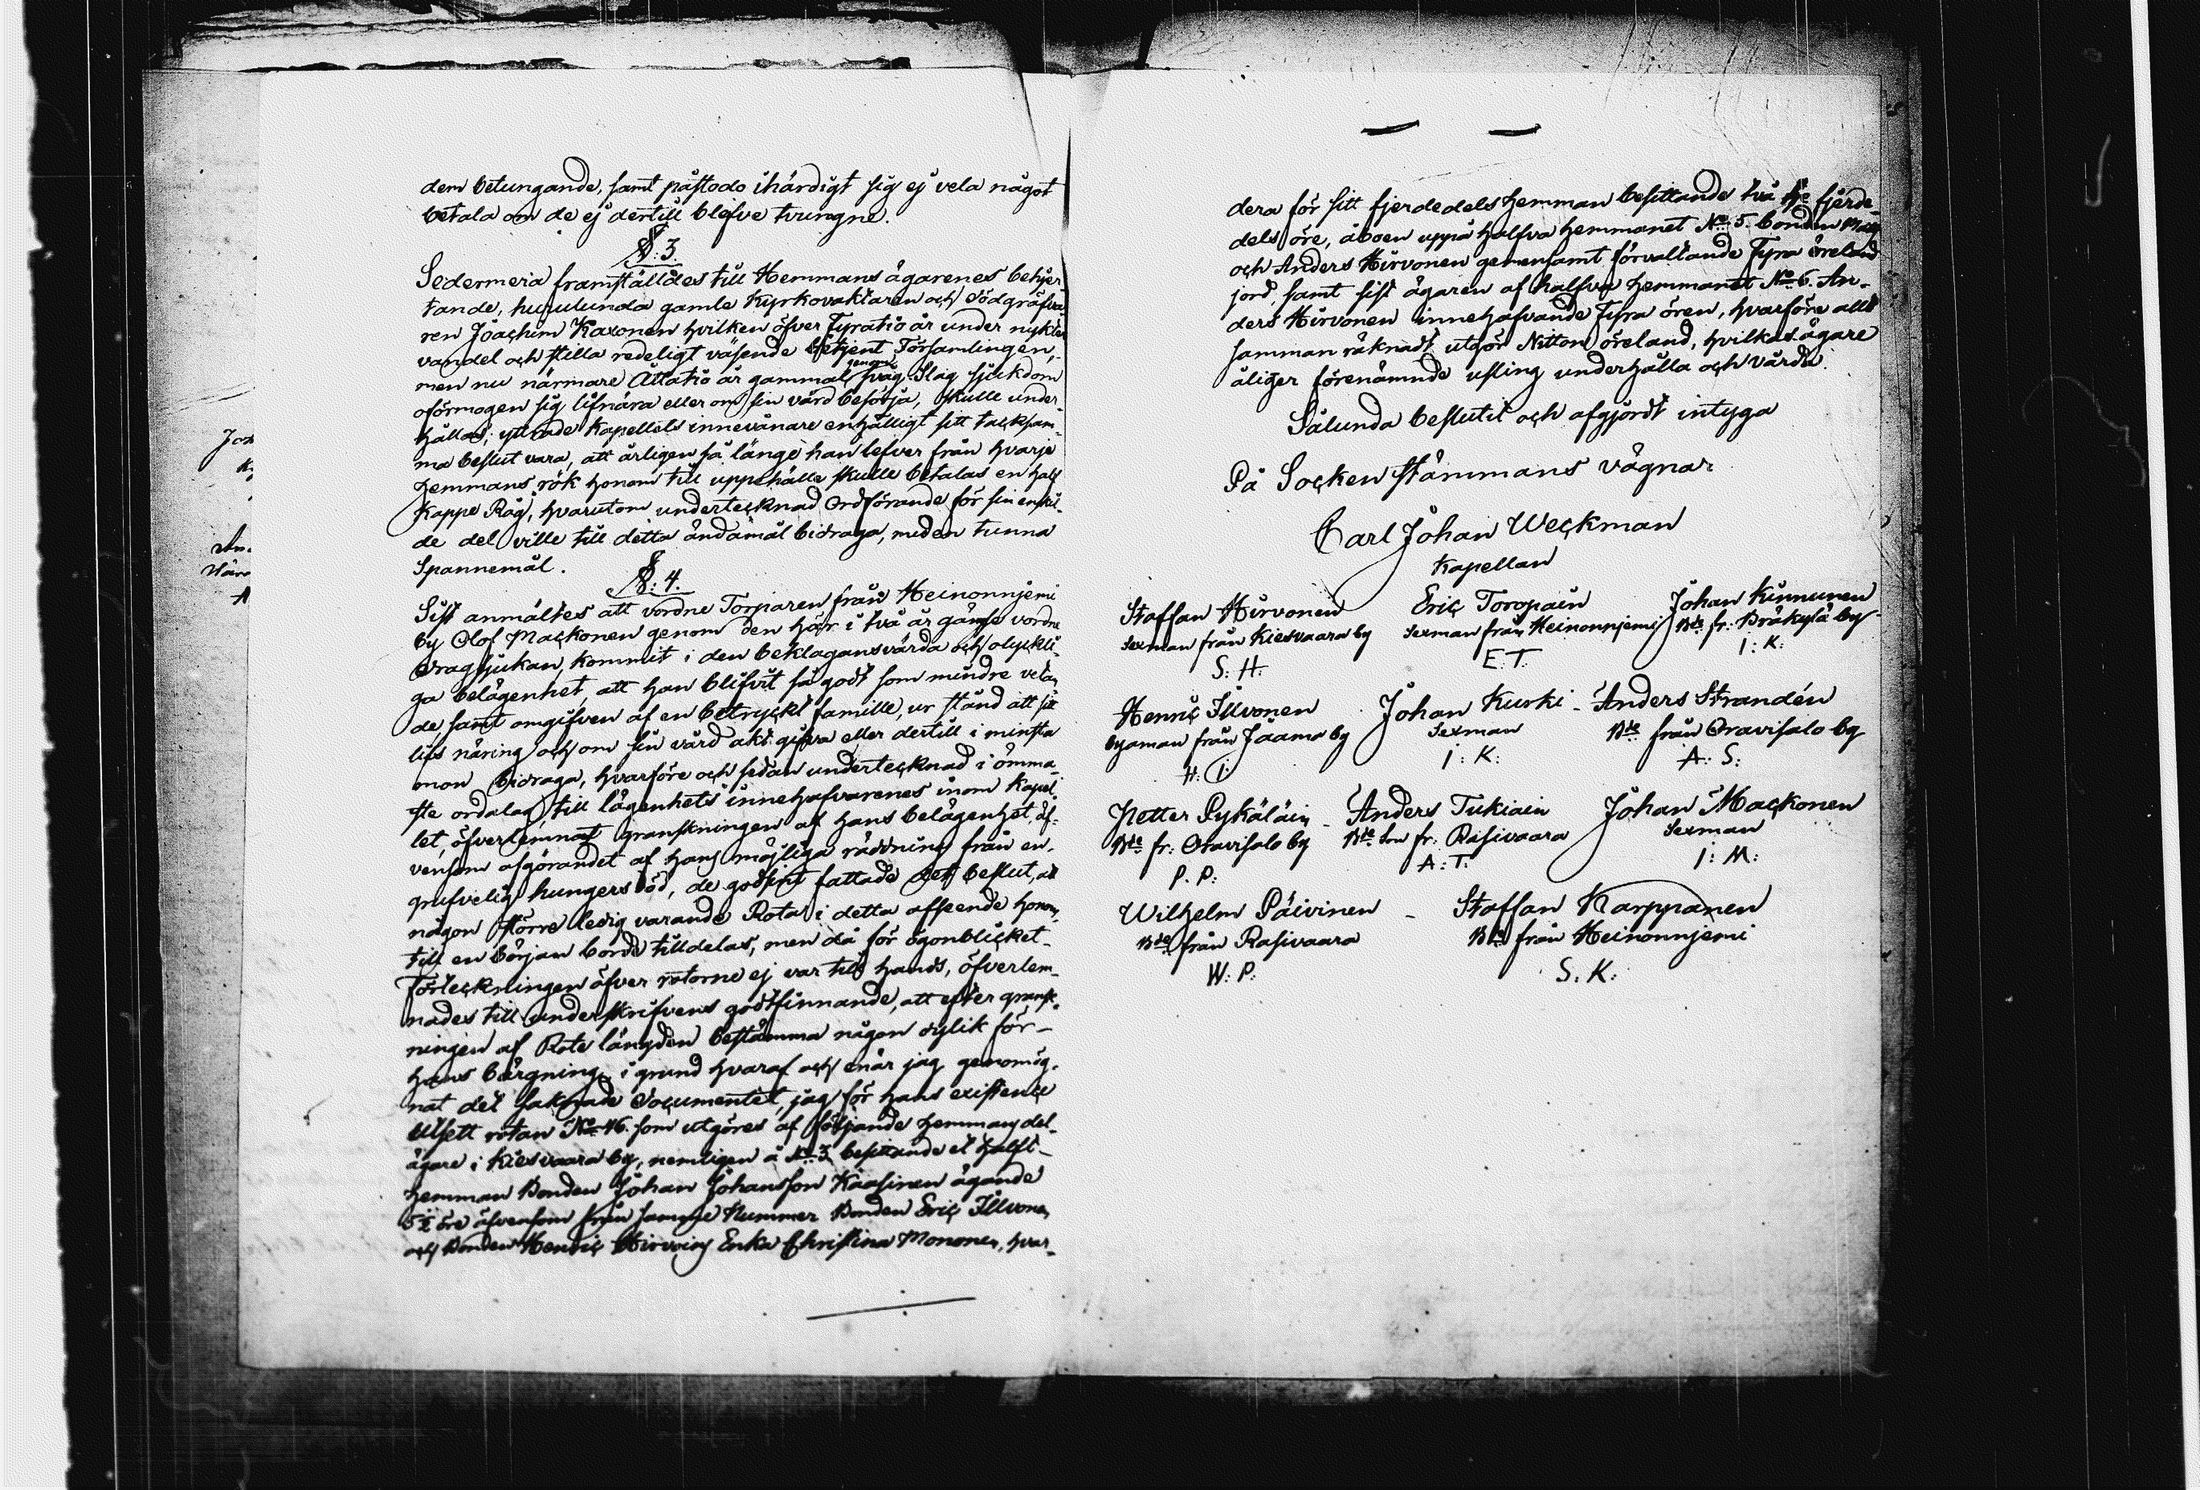 dem betungande, samt påstodo ihärdigt sig ej vela något
betala om de ej dertill blefve tvungne.
§: 3.
Sedermera framställdes till Hemmans ägarenes behjer-
tande, huruulunda gamle Kyrkovaktaren och Dödgräfva
ren Joachim Kaxonen hvilken öfver Tyratio år under nykter
vandel och stilla redeligt väsende betjent Församlingen,
men nu närmare Åttatio år gammal genom svag Slag sjukdom
oförmogen sig lifnära eller om sin vård besörja, skulle under-
hållas; yttrade Kapellets innevånare enhälligt sitt tacksam-
ma beslut vara, att årligen så länge han lefver från hvarje
hemmans rök honom till uppehälle skulle betalas en half
Kappe Råg, hvarutom undertecknad Ordförande för sin enskil-
de del ville till detta ändamål bidraga, meden tunna
Spannemål.
§: 4.
Sist anmältes att vordne Torparen från Heinonnjemi
by Olof Mackonen genom den här i två år gängse vordne
Dragsjukan, kommit i den beklagansvärda och olyckli-
ga belägenhet, att han blifvit så godt som mindre vetan
de samt omgifven af en betryckt famille, ur stånd att sitt
lifs näring och om sin vård akt gifva eller dertill i minsta
mon bidraga, hvarföre och sedan undertecknad i ömma-
ste ordalag till lägenhets innehafvarenes inom Kapel-
let, öfverlemnat granskningen af hans belägenhet, äf-
vensom afgörandet af hans möjliga räddning från en
grufvelig hungersdöd, de godsint fattade det beslut, att
någon större ledig varande Rotar i detta afseende honom
till en början borde tilldelas, men då för ögonblicket
Förteckningen öfver rotorne ej var till hands, öfverlem-
nades till underskrifvens godtfinnande, att efter gransk-
ningen af Rote längden bestämma någon dylik för-
hans bärgning, i grund hvaraf och enär jag genomög-
nat det saknade Documentet, jag för hans existence
utsett rotan No 46. som utgöres af följande hemmans del-
ägare i Kiesvaara by, nemligen å No 3 besittande et halft-
hemman Bonden Johan Johansson Kaasinen ägande
5 ½ öre äfvensom från samme Nummer Bonden Eric Illvonen
och Bonden Henric Hirvoinens Enka Christina Mononen, hvar-
dera för sitt fjerdedels hemman besittande två fjerde-
dels öre, åboen uppå halfva hemmanet No 5. bonden
och Anders Hirvonen gemensamt förvaltande Fyra öreland
jord, samt sist ägaren af halfva hemmanet No 6. An-
ders Hirvonen innehafvande Fyra ören, hvarföre allt
samman räknadt utgör Nitton öreland, hvilkas ägare
åligger förenämnde usling underhålla och vårda.
Sålunda beslutit och afgjordt intyga
På Socken Stämmans vägnar
Carl Johan Weckman
Kapellan
Staffan Hirvonen Eric Toropain Johan Kinnunen
Sexman från Kiesvaara by Sexman från Heinonnjemi Bde fr: Dräkylä by
S: H. E: T. I: K:
Henric Illvonen Johan Kurki - Anders Strandén
byaman från Jaama by Sexman Bde från Oravisalo by
H: I: I: K: A: S:
Petter Pykäläin - Anders Tukiain Johan Mackonen
Bde fr: Oravisalo by Bde Son fr: Rasivaara Sexman
P. P: A: T. I: M:
Wilhelm Päivinen - Staffan Karppanen
Bde från Rasivaara Bde från Heinonnjemi
W: P: S. K: